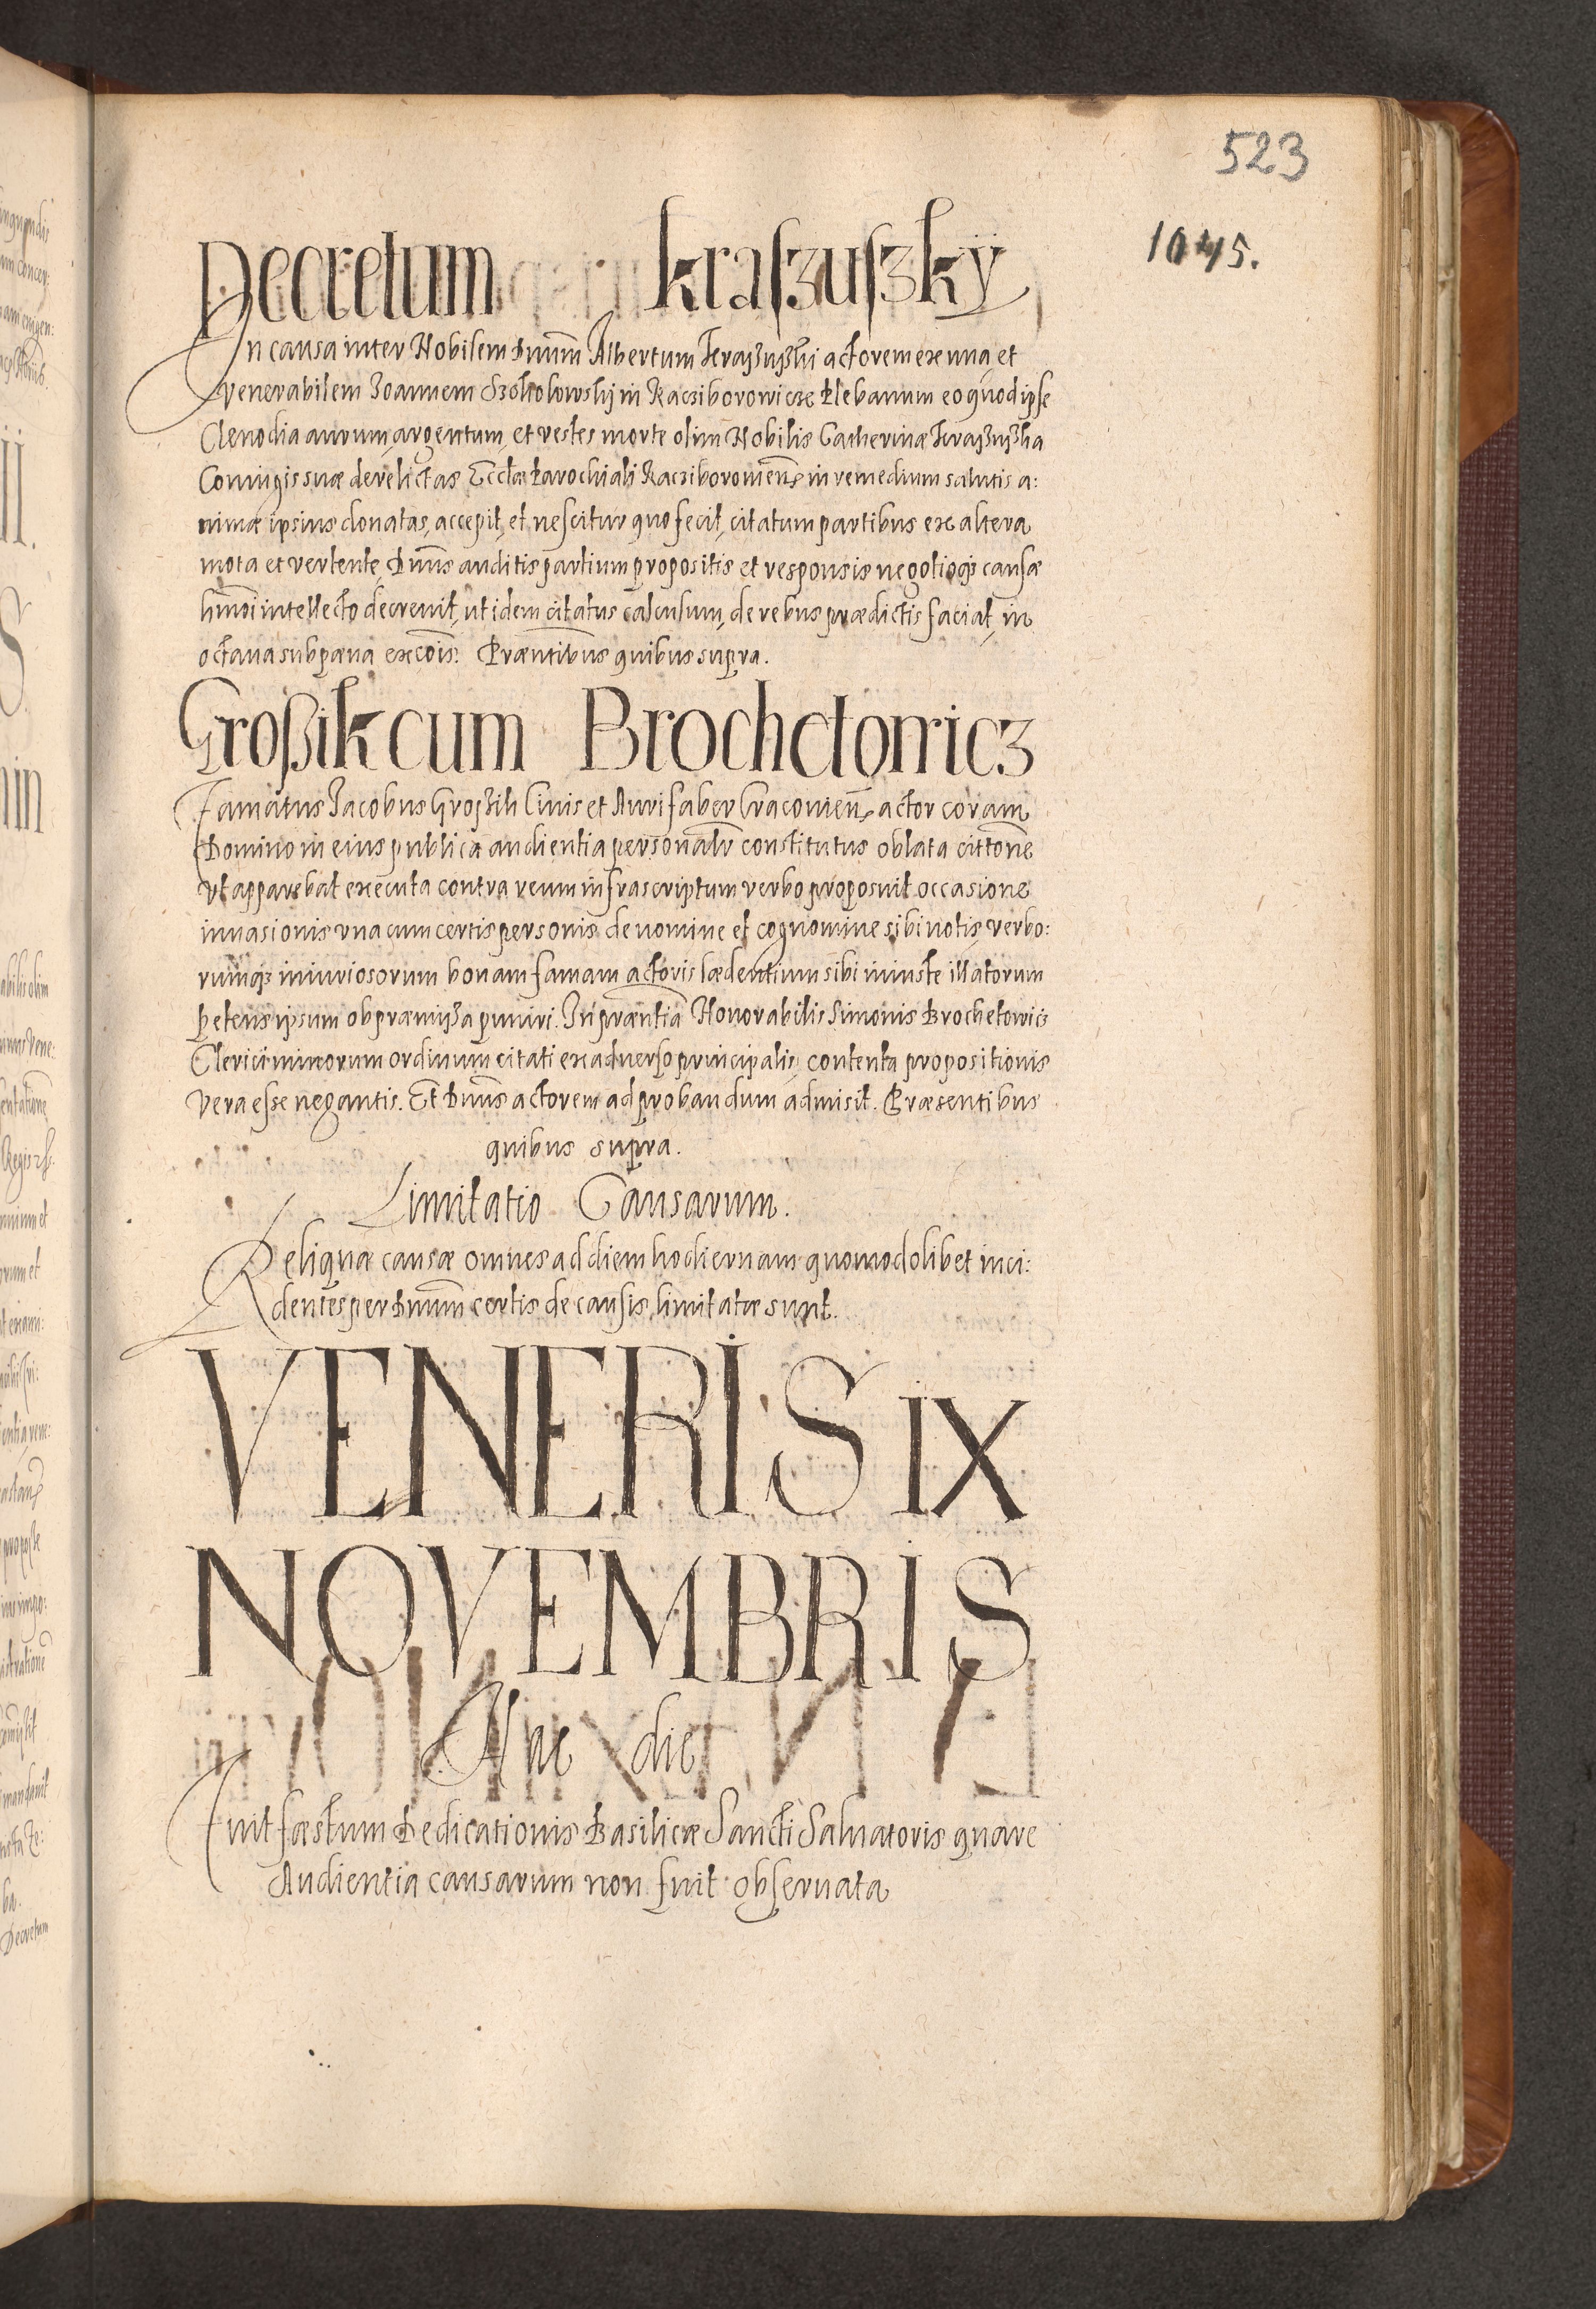 523
1045.
Decretum kraſzuſzkÿ
In causa inter Nobilem Dnum Albertum Kraſzuſzki actorem ex una et
venerabilem Joannem Szokolowskÿ in Racziborowicze Plebanum eo quod ipse
Clenodia aurum, argentum, et vestes morte olim Nobilis Catherinæ Kraſzuſzka
Coniugis suæ derelictas Eccłæ Parochiali Racziborouieñ in remedium salutis a:
nimæ ipsius donatas, accepit, et nescitur quo fecit, citatum partibus ex altera
mota et vertente, Dnus auditis partium propositis et responsis negotioqȝ causæ
hmoi intellecto decreuit, ut idem citatus calculum, de rebus prædictis faciat, in
octaua sub pæna excois. Præntibus quibus supra.
Groſzik cum Brochetowicz
Famatus Jacobus Groſzik Ciuis et Aurifaber Cracouieñ actor coram
Domino in eius publica audientia personalr constitutus oblata cittone
vt apparebat executa contra reum infrascriptum verbo proposuit occasione
inuasionis vna cum certis personis de nomine et cognomine sibi notis, verbo:
rumqȝ iniuriosorum bonam famam actoris lædentium sibi iniuste illatorum
petens ipsum ob præmiſsa puniri. In præntia Honorabilis Simonis Brochetowicz
Clerici minorum ordinum citati ex aduerso principalis, contenta propositionis
vera eſse negantis. Et Dnus actorem ad probandum admisit. Præsentibus
quibus supra.
Limitatio Causarum.
Reliquæ causæ omnes ad diem hodiernam quomodolibet inci:
dentes per Dnum certis de causis limitatæ sunt.
VENERIS IX
NOVEMBRIS
Hac die
Fuit fæstum Dedicationis Basilicæ Sancti Saluatoris quare
Audientia causarum non fuit obseruata